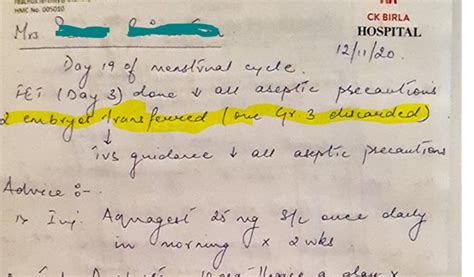 HMC No. 005010
Mrs
CK BIRLA
HOSPITAL
12/11/20.
Day 19 of menstrual cycle.
FET (Day 3) done ↓ all aseptic precautions
2 embryos transferred (one Gr. 3 discarded)
↓
IVS guidance ↓ all aseptic precautions
Advice :-
Inj. Aquagest 25 ng S/c once daily
in morning x 2 wks